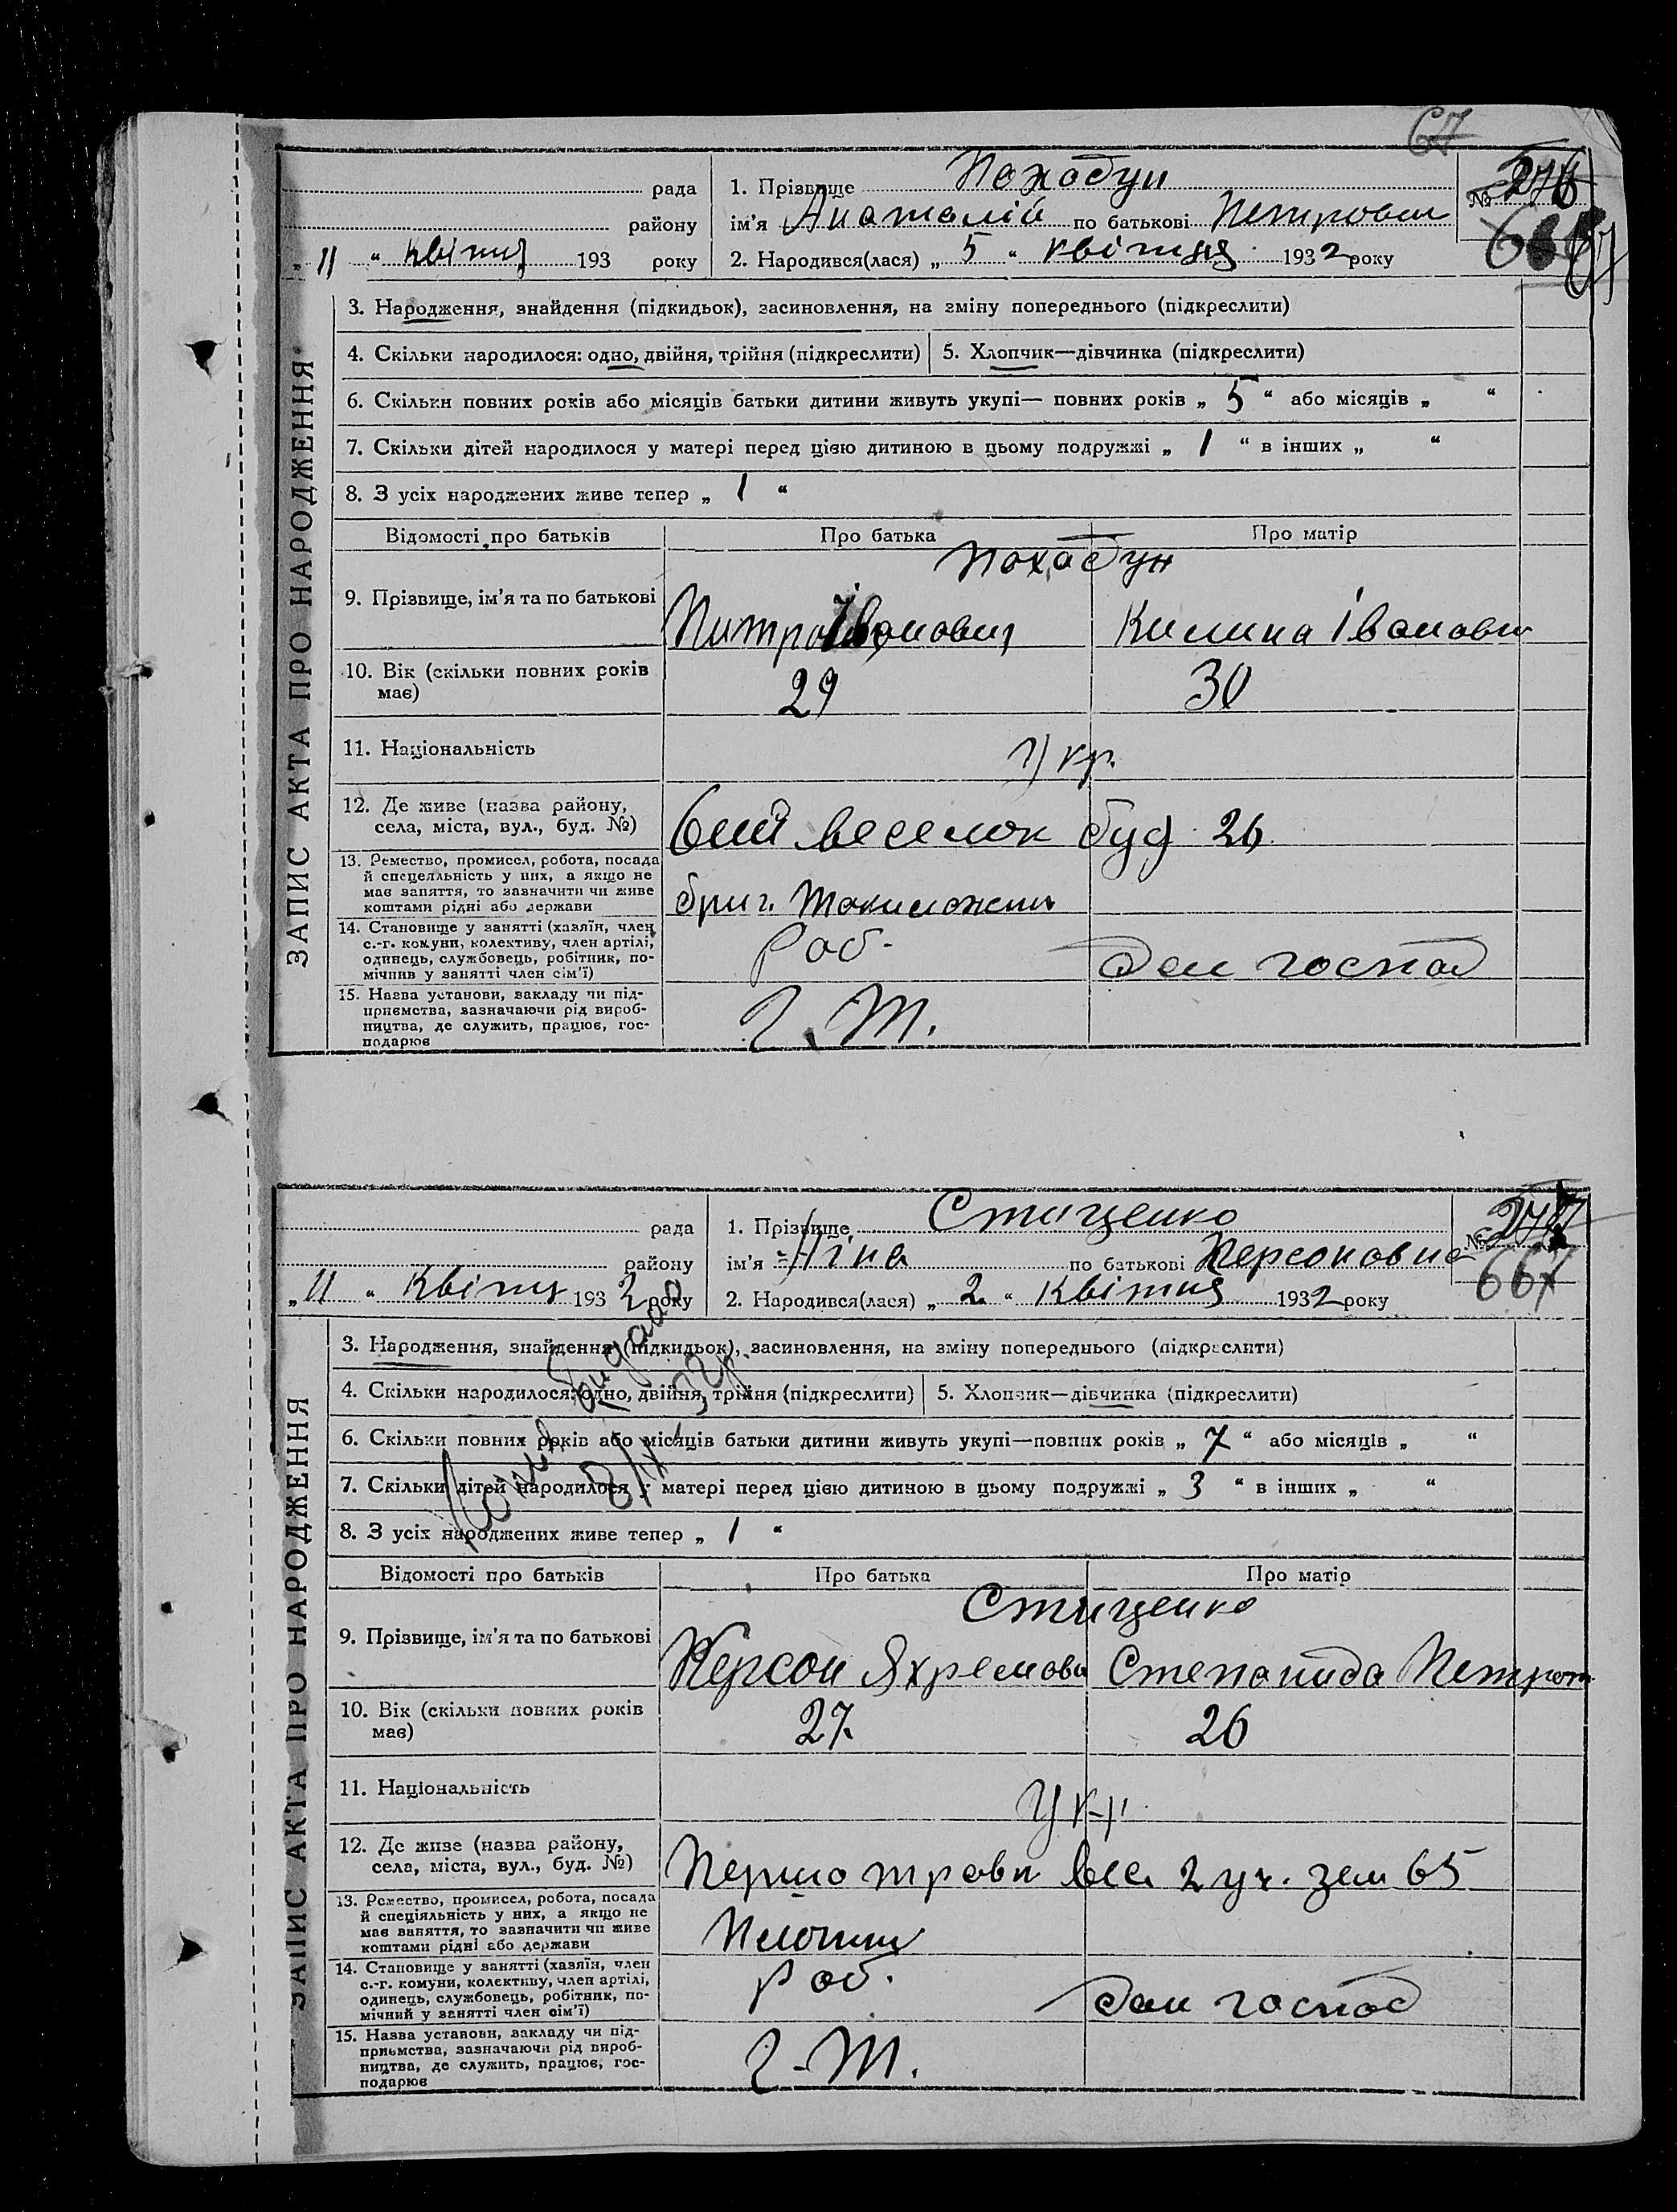 67
рада
району
„ 11 “ Квітня 193 року
1. Прізвище Походун
ім’я Анаталій по батькові Петрович
2. Народився(лася) „ 5 “ квітня 1932 року
№ 276
ЗАПИС АКТА ПРО НАРОДЖЕННЯ
3. Народження, знайдення (підкидьок), засиновлення, на зміну попереднього (підкреслити)
4. Скільки народилося: одно, двійня, трійня (підкреслити) 5. Хлопчик—дівчинка (підкреслити)
6. Скільки повних років або місяців батьки дитини живуть укупі— повних років „ 5 “ або місяців „ “
7. Скільки дітей народилося у матері перед цією дитиною в цьому подружжі „ 1 “ в інших „ “
8. З усіх народжених живе тепер „ 1 “
Відомості про батьків Про батька Про матір
Походун
9. Прізвище, ім’я та по батькові Питро Іванович Килина Іванови
10. Вік (скільки повних років має) 29 30
11. Національність Укр.
12. Де живе (назва району, села, міста, вул., буд. №) веселок буд. 26
13. Ремество, промисел, робота, посада
й спецеяльність у них, а якщо не
має заняття, то зазначити чи живе
коштами рідні або держави
бриг.
14. Становище у занятті (хазяїн, член
с.-г. комуни, колективу, член артілі,
одинець, службовець, робітник, по-
мічнив у занятті член сім’ї)
Роб. дом господ
15. Назва установи, закладу чи під-
приємства, зазначаючи рід вироб-
ництва, де служить, працює, гос-
подарює
Г. Т.
рада
району
„ 11 “ Квітня 1932 року
1. Прізвище Стиценко
ім’я Ніна по батькові Персоновна
2. Народився(лася) „ 2 “ Квітня 1932 року
№ 277
667
ЗАПИС АКТА ПРО НАРОДЖЕННЯ
3. Народження, знайдення (підкидьок), засиновлення, на зміну попереднього (підкреслити)
4. Скільки народилося: одно, двійня, трійня (підкреслити) 5. Хлопчик—дівчинка (підкреслити)
6. Скільки повних років або місяців батьки дитини живуть укупі—повних років „ 7 “ або місяців „ “
7. Скільки дітей народилося у матері перед цією дитиною в цьому подружжі „ 3 “ в інших „ “
8. З усіх народжених живе тепер „ 1 “
Відомості про батьків Про батька Про матір
Стиценко
9. Прізвище, ім’я та по батькові Персон Яхремови Степонида Петров
10. Вік (скільки повних років має) 27 26
11. Національність Укр.
12. Де живе (назва району, села, міста, вул., буд. №) Першо травн вес. 2 уч. зем 65
13. Ремество, промисел, робота, посада
й спеціяльність у них, а якщо не
має заняття, то зазначити чи живе
коштами рідні або держави
14. Становище у занятті (хазяїн, член
с.-г. комуни, колективу, член артілі,
одинець, службовець, робітник, по-
мічний у занятті член сім’ї)
роб. дом господ
15. Назва установи, закладу чи під-
приємства, зазначаючи рід вироб-
ництва, де служить, працює, гос-
подарює
Г. Т.